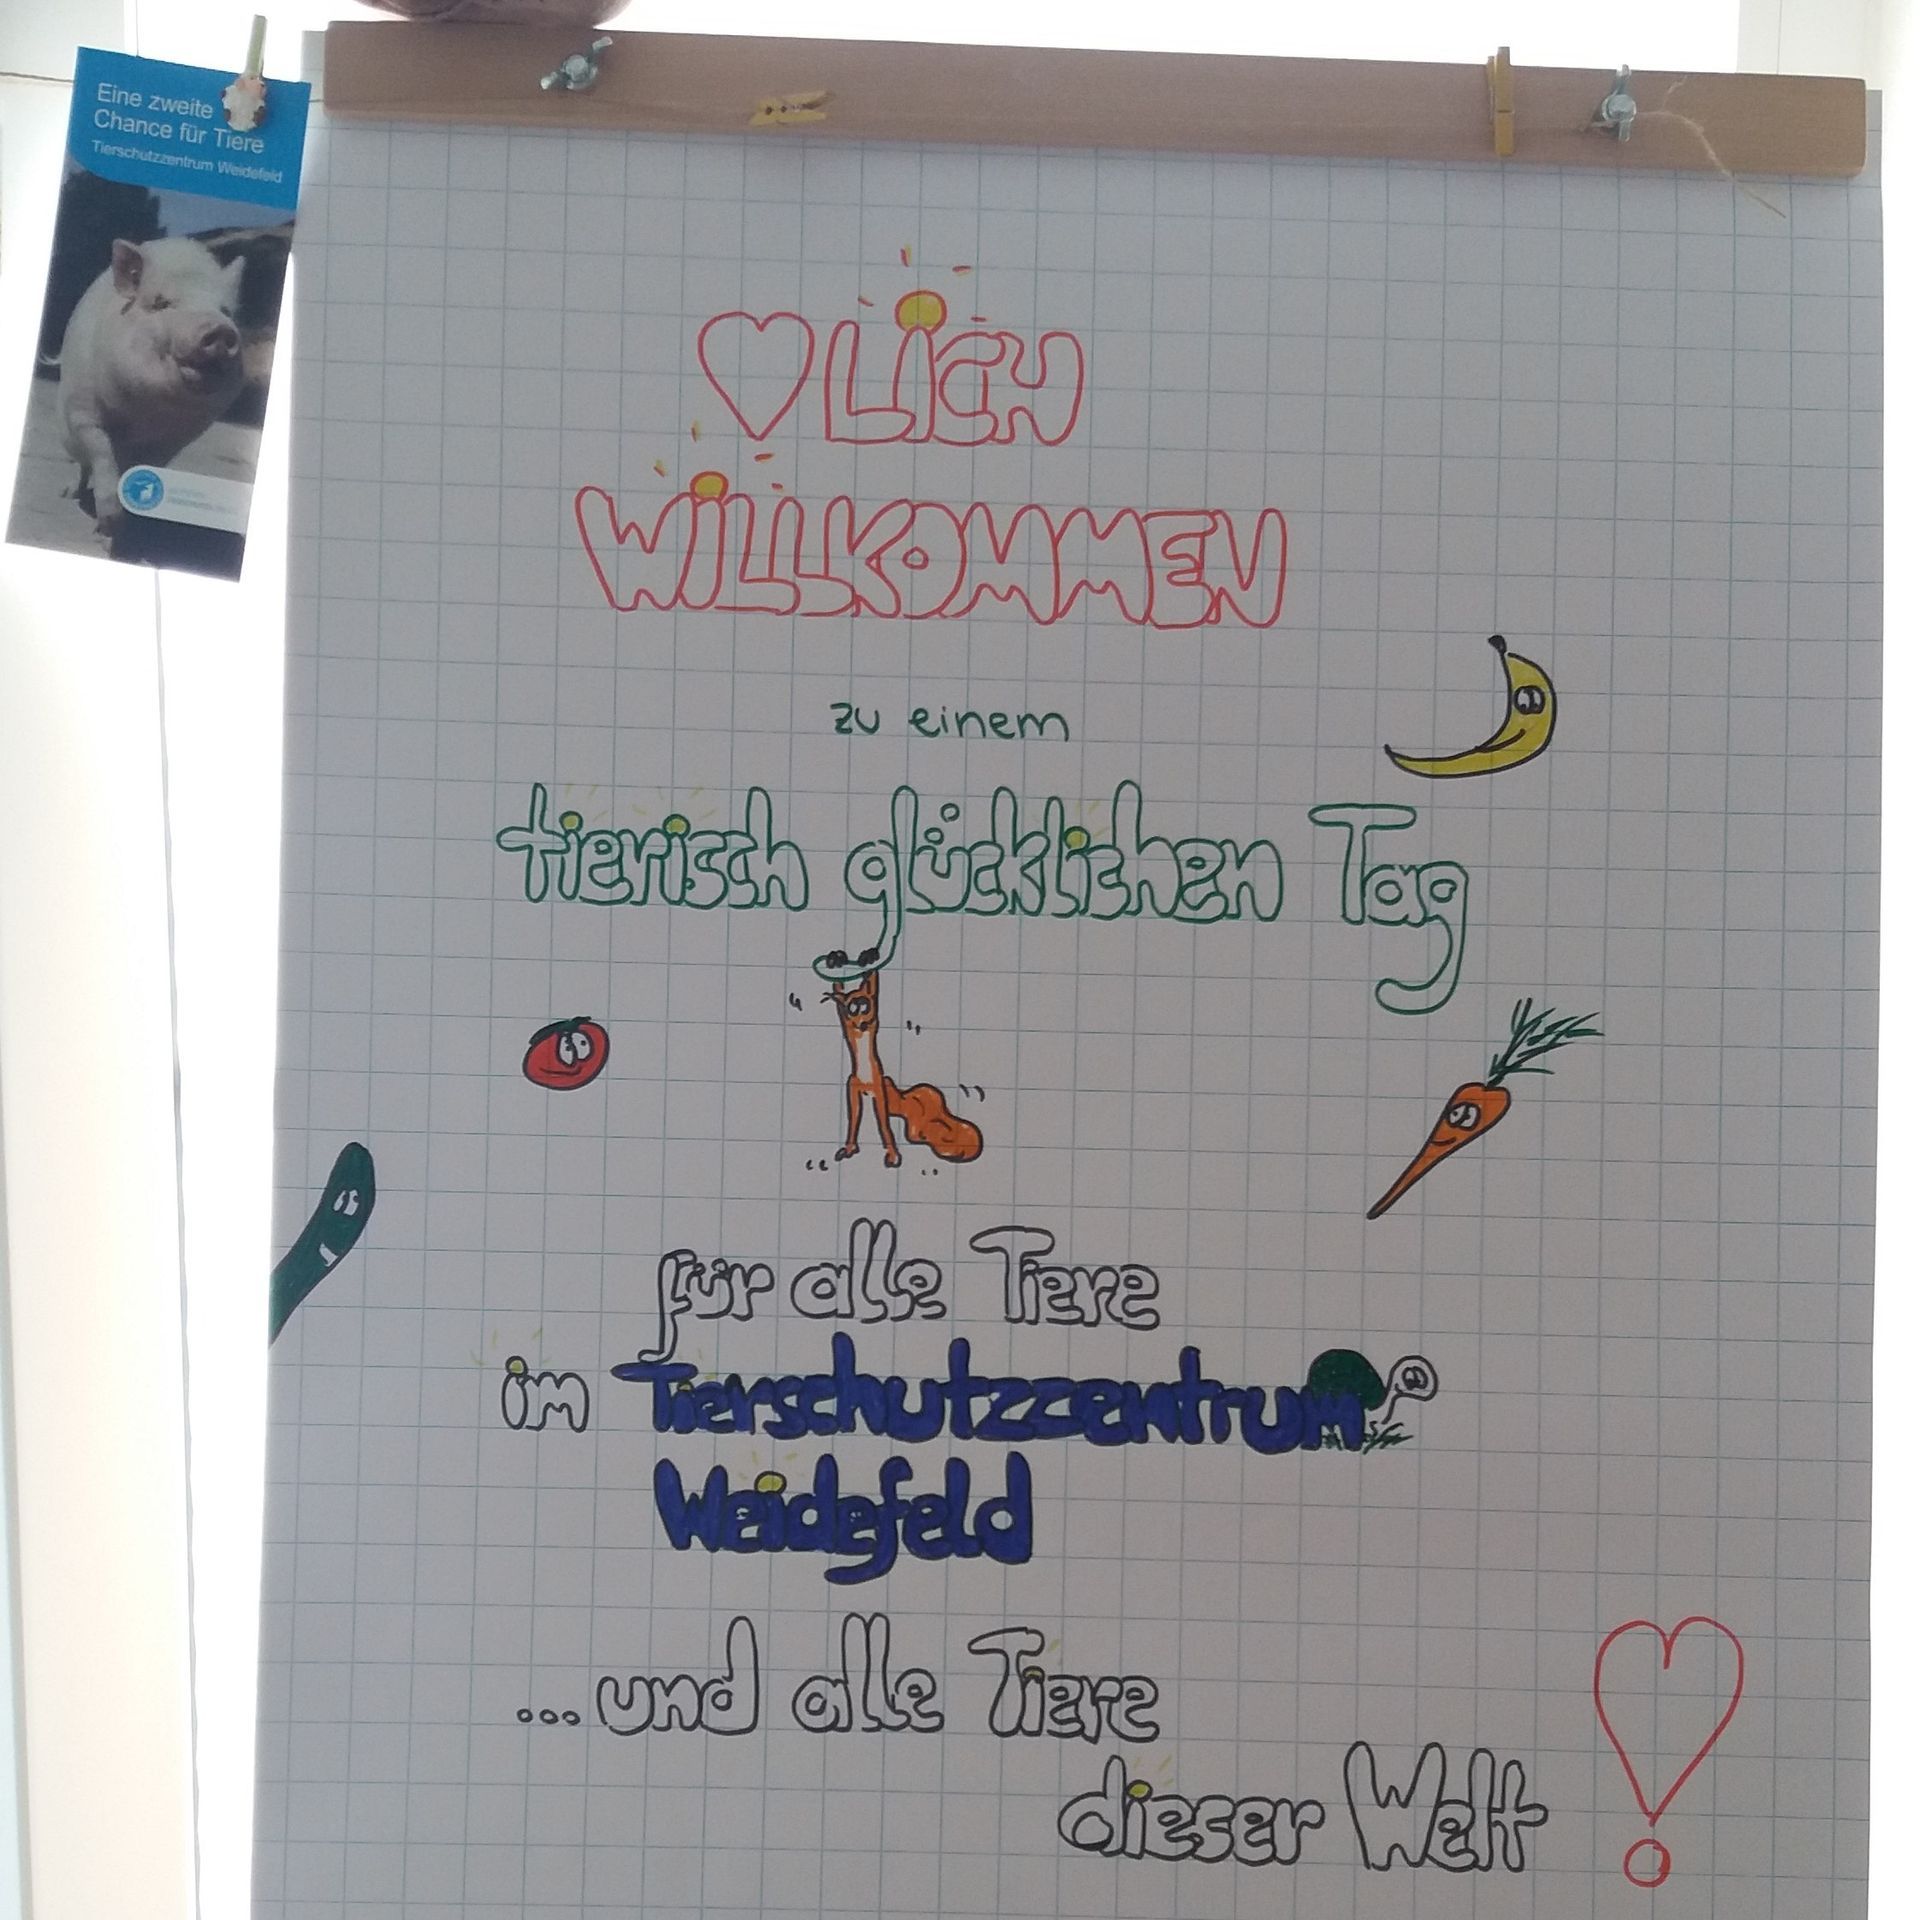 Eine zweite
Chance für Tiere
Tierschutzzentrum Weidefeld
♡LICH
WILLKOMMEN
zu einem
tierisch glücklichen Tag
für alle Tiere
im Tierschutzzentrum
Weidefeld
...und alle Tiere
dieser Welt